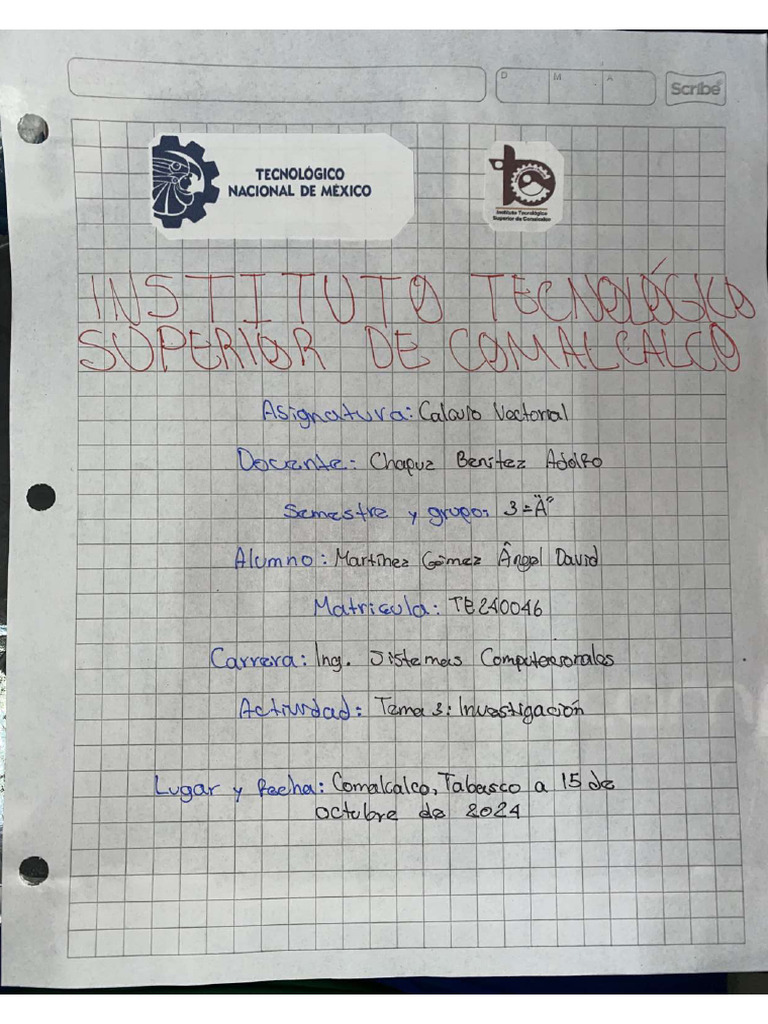 D M A
Scribe
TECNOLÓGICO
NACIONAL DE MÉXICO
Instituto Tecnológico
Superior de Comalcalco
INSTITUTO TECNOLÓGICO
SUPERIOR DE COMALCALCO
Asignatura: Calculo Vectorial
Docente: Chapuz Benitez Adolfo
Semestre y grupo: 3="A"
Alumno: Martínez Gómez Ángel David
Matricula: TE240046
Carrera: Ing. Sistemas Computacionales
Actividad: Tema 3: Investigación
Lugar y fecha: Comalcalco, Tabasco a 15 de
octubre de 2024